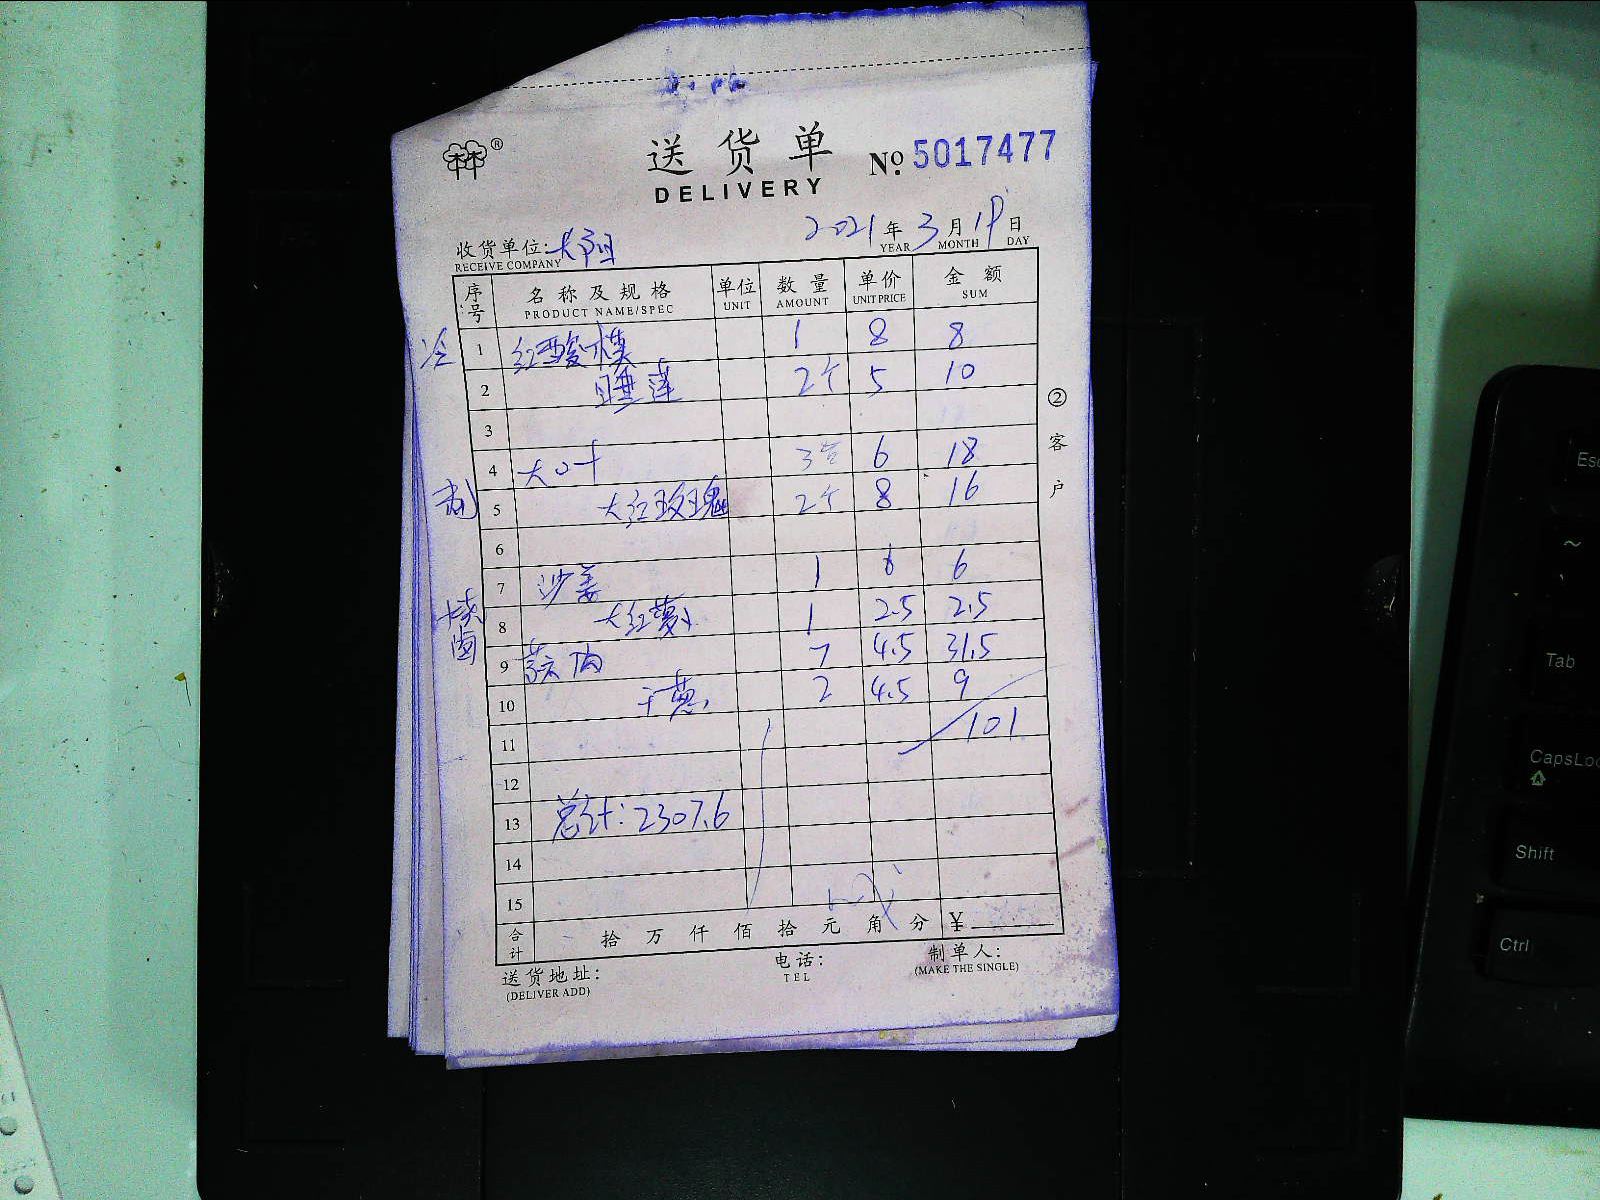 送货单
DELIVERY
No. 5017477
2021年3月19日
YEAR MONTH DAY
收货单位:太阳
RECEIVE COMPANY
序号 名称及规格 单位 数量 单价 金额
PRODUCT NAME/SPEC UNIT AMOUNT UNIT PRICE SUM
冷 1 红酸模 1 8 8
2 睡莲 2个 5 10
3
4 大口十 3 6 18
5 大红玫瑰 2个 8 16
6
7 沙姜 1 6 6
烧卤 8 大红萝卜 1 2.5 2.5
9 蒜肉 7 4.5 31.5
10 干葱 2 4.5 9
11 101
12
13 总计:2307.6
14
15
合计 拾 万 仟 佰 拾 元 角 分 ¥
② 客户
送货地址:
(DELIVER ADD)
电话:
TEL
制单人:
(MAKE THE SINGLE)
Esc
~
Tab
CapsLoc
Shift
Ctrl